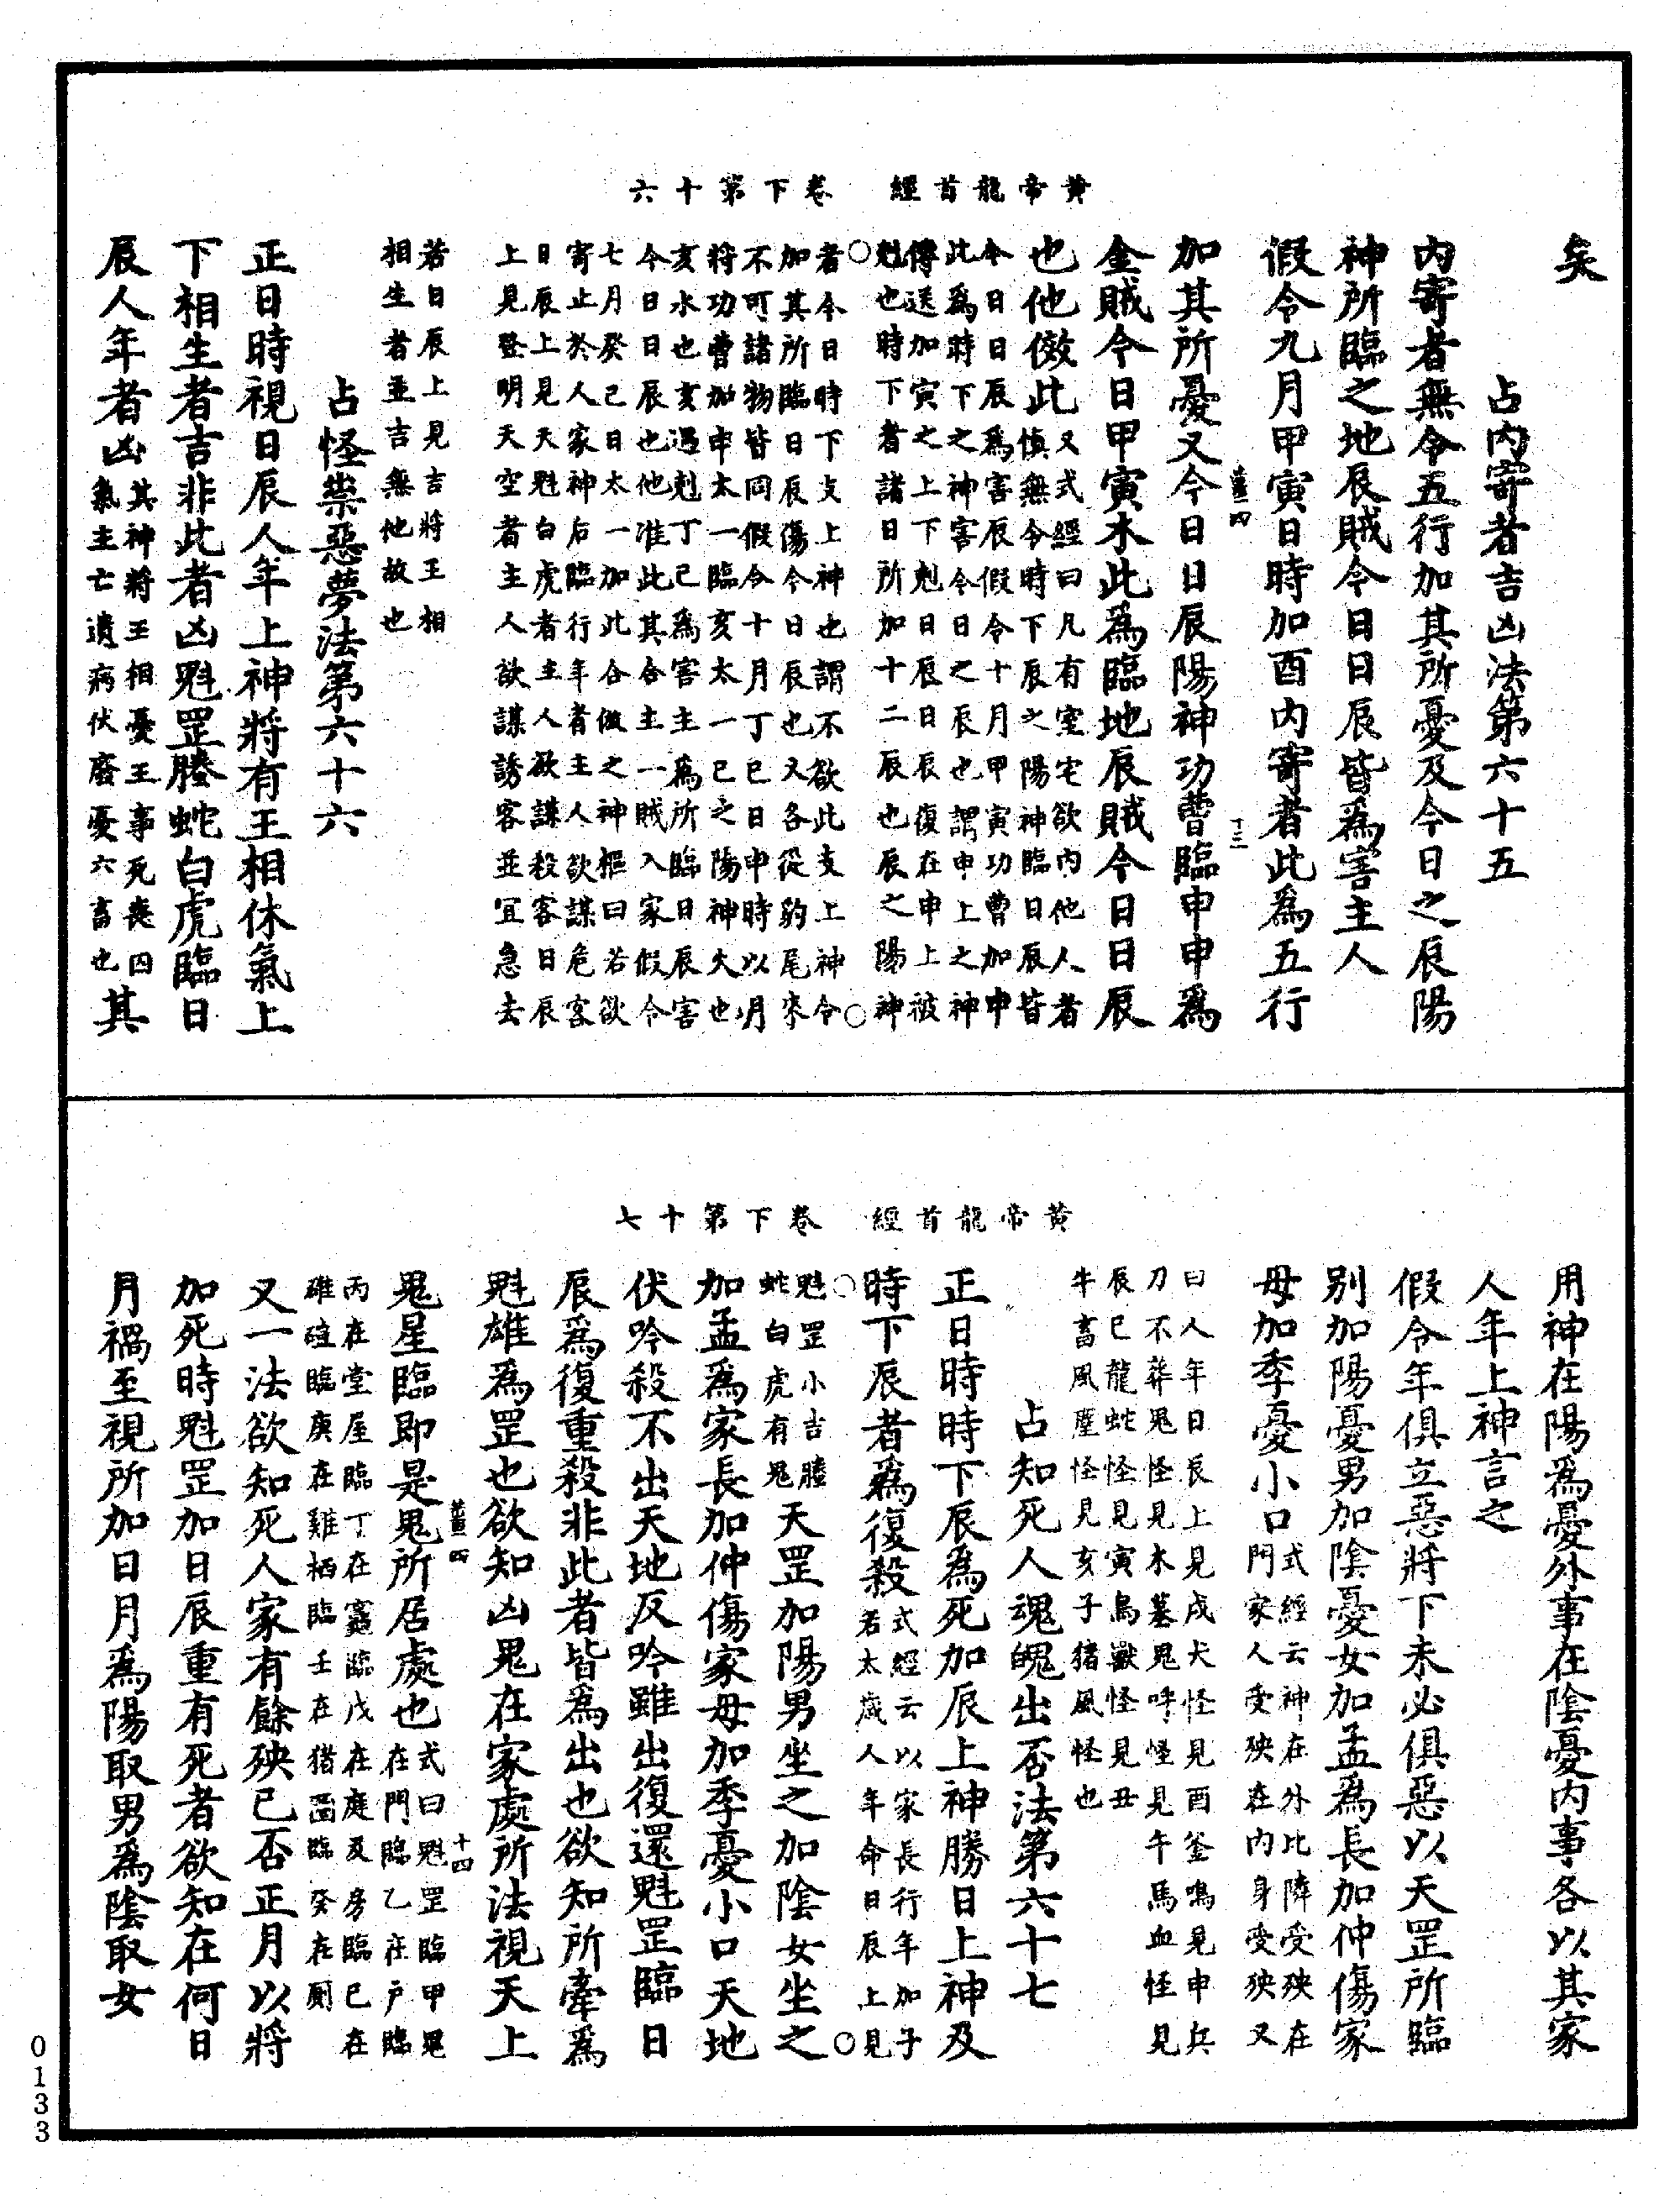 黄帝龍首經　卷下第十六
矣
占内寄者吉凶法第六十五
内寄者無令五行加其所憂及今日之辰陽
神所臨之地辰賊今日日辰皆爲害主人
假令九月甲寅日時加酉内寄者此爲五行
加其所憂又今日日辰陽神功曹臨申申爲
金賊今日甲寅木此爲臨地辰賊今日日辰
也他倣此又式經曰凡有室宅欲内他人者
慎無令時下辰之陽神臨日辰皆
令日日辰爲害辰假令十月甲寅功曹加申
此爲時下之神害今日之辰也謂申上之神
傳送加寅之上下剋日辰日辰復在申上被
剋也時下者諸日所加十二辰也辰之陽神
者今日時下支上神也謂不欲此支上神今
加其所臨日辰傷今日日辰也又各從豹尾來
不可諸物皆同假令十月丁巳日申時以月
將功曹加申太一臨亥太一巳之陽神火也
亥水也亥亥過剋丁巳爲害主爲所臨日辰害
今日日辰也他准此其合主一賊入家假令
七月癸巳日太一加此合倣之神樞曰若欲
寄止於人家神后臨行年者主人欲謀危客
日辰上見天魁白虎者主人欲謀殺客日辰
上見登明天空者主人欲謀誘客並宜急去
若日辰上見吉將王相
相生者並吉無他故也
占怪祟惡夢法第六十六
正日時視日辰人年上神將有王相休氣上
下相生者吉非此者凶魁罡螣蛇白虎臨日
辰人年者凶其神將王相憂王事死喪囚
氣主亡遺病伏廢憂六畜也其
黄帝龍首經　卷下第十七
用神在陽爲憂外事在陰憂内事各以其家
人年上神言之
假令年俱立惡將下未必俱惡以天罡所臨
别加陽憂男加陰憂女加孟爲長加仲傷家
母加季憂小口式經云神在外比隣受殃在
門家人受殃在内身受殃又
曰人年日辰上見戌犬怪見酉釜鳴見申兵
刀不葬鬼怪見未墓鬼呼怪見午馬血怪見
辰巳龍蛇怪見寅鳥獸怪見丑
牛畜風塵怪見亥子猪鼠怪也
占知死人魂魄出否法第六十七
正日時時下辰爲死加辰上神勝日上神及
時下辰者爲復殺式經云以家長行年加子
若太歲人年命日辰上見
魁罡小吉螣
蛇白虎有鬼天罡加陽男坐之加陰女坐之
加孟爲家長加仲傷家母加季憂小口天地
伏吟殺不出天地反吟雖出復還魁罡臨日
辰爲復重殺非此者皆爲出也欲知所牽爲
魁雄爲罡也欲知凶鬼在家處所法視天上
鬼星臨即是鬼所居處也式曰魁罡臨甲鬼
在門臨乙在户臨
丙在堂屋臨丁在竈臨戊在庭及房臨巳在
碓磑臨庚在雞栖臨壬在猪圂臨癸在厠
又一法欲知死人家有餘殃已否正月以將
加死時魁罡加日辰重有死者欲知在何日
月禍至視所加日月爲陽取男爲陰取女
0133